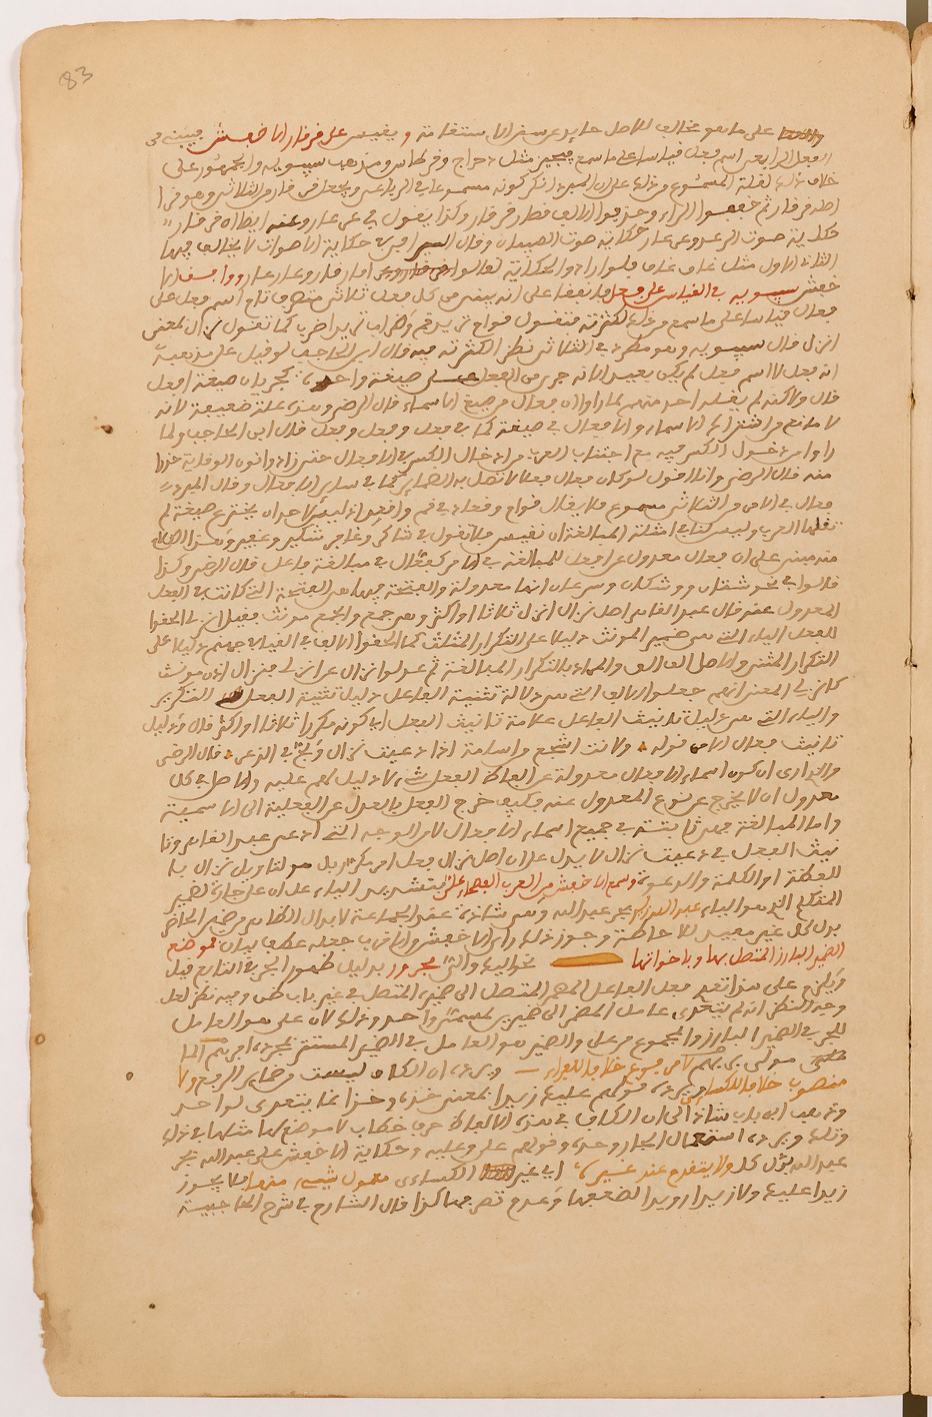 83
على ما هو مخالف للاصل حايد عن سنن الاستقامة ويقيس على قرقار الاخفش فيبنى من
الفعل الرباعي اسم فعل قياسا على ما سمع فيجيز مثل دحراج وقرطاس ومذهب سيبويه والجمهور على
خلاف ذلك لقلة المسموع من ذلك على ان المبرد انكر كونه مسموعا في الرباعي
اصله قرقار ثم خففوا الراء وحذفوا الالف فصار قرقار وكذا يقول في عرعار وعنه ايضا ان قرقار
حكاية صوت الرعد وعرعار حكاية صوت الصبيان وقال السيرافي حكاية الاصوات لا يخالف فيها
الثاني الاول مثل غاق غاق فلو ارادوا الحكاية لقالوا قار قار وعار عار ووافق الا
خفش سيبويه في القياس على فعل فاتفقا على انه يبنى من كل فعل ثلاثي متصرف تام اسم فعل على
فعال قياسا على ما سمع من ذلك لكثرته فتقول قوام تريد قم وضراب تريد اضرب كما تقول نزال بمعنى
انزل قال سيبويه وهو مطرد في الثلاثي نظرا لكثرته فيه قال ابن الحاجب لو قيل على مذهبه
انه فعل لا اسم فعل لم يكن بعيدا لانه جرى من الفعل على صيغة واحدة كجريان صيغة افعل
قال ولاكنه لم يقله احد منهم لما راوا ان فعال من صيغ الاسماء قال الرضي وهذه علة ضعيفة لانه
لا مانع من اشتراك الاسماء والافعال في صيغة كما في فعل وفعل وفعل قال ابن الحاجب ولما
راوا من دخول الكسر فيه مع اجتناب العرب من ادخال الكسر في الافعال حتى زادوا نون الوقاية حذرا
منه قال الرضي وانا اقول لو كان فعال فعلا لاتصل به الضماير كما في ساير الافعال وقال المبرد
فعال في الامر من الثلاثي مسموع فلا يقال قوام وقعاد في قم واقعد اذ ليس لاحد ان يخترع صيغة لم
تقلها العرب وليس لنا في امثلة المبالغة ان نقيس فلا نقول في شاكر وغافر شكير وغفير وهذا
منه مبني على ان فعال معدول عن افعل للمبالغة في الامر كفعال في مبالغة فاعل قال الرضي وكذا
قالوا في نحو شتان ووشكان وسرعان انها معدولة والفتحة فيها هي الفتحة التي كانت في الفعل
المعدول عنه قال عبد القاهر اصل نزال انزل ثلاثا او اكثر وهي جمع والجمع مونث فقيل انزلي الحقوا
الفعل الياء التي هي ضمير المونث دليلا على التكرار المثلث كما الحقوا الالف في القيا في جهنم دليلا على
التكرار المثنى والاصل الق الق والمراد بالتكرار المبالغة ثم عدلوا نزال عن انزلي فنزال اذن مونث
كانزلي المعنى انهم جعلوا الالف التي هي دلالة تثنية الفاعل دليل تثنية الفعل للتكرير
والياء التي هي دليل تانيث الفاعل علامة تانيث الفعل اي كونه مكررا ثلاثا او اكثر قال ودليل
تانيث فعال الامر قوله ولانت اشجع من اسامة اذا دعيت نزال ولج في الذعر قال الرضي
والذي ارى ان كون اسماء الافعال معدولة عن الفاظ الفعل شيء لا دليل لهم عليه والاصل في كل
معدول ان لا يخرج عن نوع المعدول عنه فكيف خرج الفعل بالعدل عن الفعلية الى الاسمية
واما المبالغة فهي ثابتة في جميع اسماء الافعال لا من الوجه الذي ادعى عبد القاهر وتا
نيث الفعل في دعيت نزال لا يدل على ان اصل نزال فعل امر مكرر بل هو لتاويل نزال با
للفظة او الكلمة والدعوة وسمع الاخفش من العرب الفصحاء علي بتشديد الياء على ان على جارة لضمير
المتكلم الذي هو الياء عبد الله بجر عبد الله وهي شاذة عند الجماعة لابدال الظاهر من ضمير الحاضر
بدل كل غير مفيد للاحاطة وجوز ذلك راى الاخفش والاقرب جعله عطف بيان فموضع
الضمير البارز المتصل بها وباخواتها نحو اليك والي مجرور بدليل ظهور الجر في التابع قيل
ويلزم على هذا تعدي فعل الفاعل المضمر المتصل الى ضميره المتصل في غير باب ظن وفيه نظر لعل
وجه النظر انه لم يتعدى عامل المضمر الى ضميرين لمسمى واحد وذلك لان على هو العامل
للجر في الضمير البارز والمجموع من على والضمير هو العامل في الضمير المستتر
لا مرفوع خلافا للفراء ويرده ان الكاف ليست من ضماير الرفع ولا
منصوب خلافا للكسائي ويرده قولهم عليك زيدا بمعنى خذه وخذ انما يتعدى لواحد
وذهب ابن بابشاذ الى ان الكاف في هذه الالفاظ حرف خطاب لا موضع لها مثلها في ذلك
وتلك ويرده استعمال الجار وحده وقولهم علي وعليه وحكاية الاخفش على عبد الله بجر
عبد الله بدل كل ولا يتقدم عند غيره اي غير الكساءي معمول شيء منها فلا يجوز
زيدا عليك ولا زيدا رويدا لضعفها وعدم تصرفها كذا قال الشارح في شرح الحاجبية